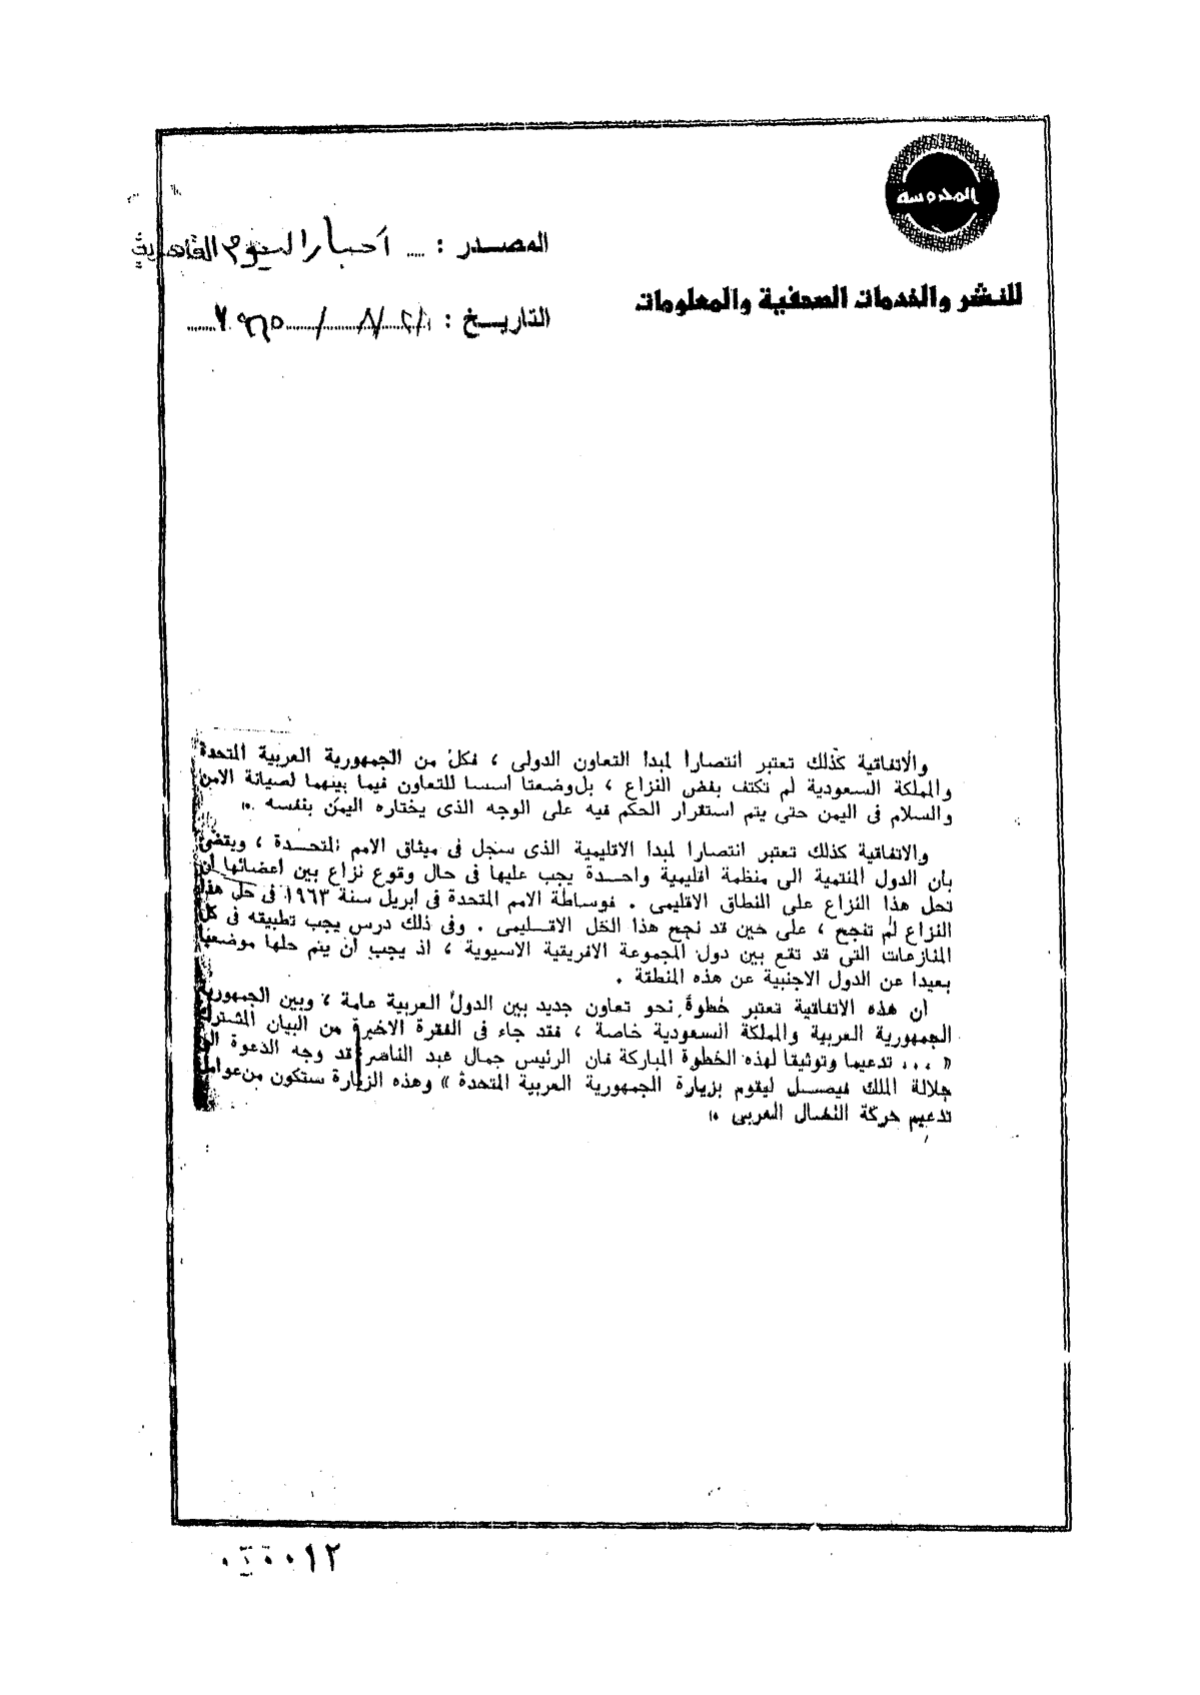 المحروسة
للنشر والخدمات الصحفية والمعلومات
المصدر : .... أخبار اليوم القاهرية
التاريخ :
والاتفاقية كذلك تعتبر انتصارا لمبدا التعاون الدولى ، فكل من الجمهورية العربية المتحدة
والمملكة السعودية لم تكتف بفض النزاع ، بل وضعتا أسسا للتعاون فيما بينهما لصيانة الامن
والسلام فى اليمن حتى يتم استقرار الحكم فيه على الوجه الذى يختاره اليمن بنفسه .
والاتفاقية كذلك تعتبر انتصارا لمبدا الاقليمية الذى سجل فى ميثاق الامم المتحـــدة ، ويقتضى
بان الدول المنتمية الى منظمة اقليمية واحـــدة يجب عليها فى حال وقوع نزاع بين اعضائها أن
تحل هذا النزاع على النطاق الاقليمى . فوساطة الامم المتحدة فى ابريل سنة ١٩٦٣ فى حل هذا
النزاع لم تنجح ، على حين قد نجح هذا الحل الاقــليمى . وفى ذلك درس يجب تطبيقه فى كل
المنازعات التى قد تقع بين دول المجموعة الافريقية الاسيوية ، اذ يجب ان يتم حلها موضعيا
بعيدا عن الدول الاجنبية عن هذه المنطقة .
أن هذه الاتفاقية تعتبر خطوة نحو تعاون جديد بين الدول العربية عامة ، وبين الجمهورية
الجمهورية العربية والمملكة السعودية خاصة ، فقد جاء فى الفقرة الاخيرة من البيان المشترك
« ... تدعيما وتوثيقا لهذه الخطوة المباركة فان الرئيس جمال عبد الناصر قد وجه الدعوة الى
جلالة الملك فيصــل ليقوم بزيارة الجمهورية العربية المتحدة » وهذه الزيارة ستكون من عوامل
تدعيم حركة النضال العربى